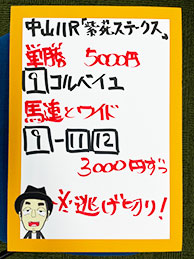 中山11R「紫苑ステークス」
単勝 5000円
9 コルベイユ
馬連とワイド
9-11 12
3000円ずつ
※逃げ切り!